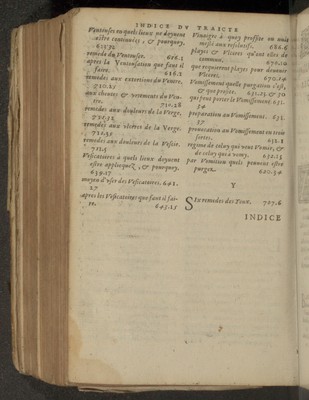 INDICE DV TRAICTE
Ventouses ou quels lieux ne doyuent
estre continuées, & pourquoy.
635.32
remede du Ventouser. 636.1
apres la Ventousation que faut il
faire. 636.2
remedes aux extortions du Ventre.
710.21
aux cheutes & vomements du Ven-
tre. 710.28
remedes aux douleurs de la Verge.
721.32
remedes aux vlceres de la Verge.
721.35
remedes aux douleurs de la Vessie.
715.5
Vesicatoires à quels lieux doyuent
estre appliquez, & pourquoy.
639.17
moyen d'vser des Vesicatoires. 641.
27
apres les Vesicatoires que faut il fai-
re. 643.15
Vinaigre à quoy proffite ou nuit
meslé aux resolutifs. 686.6
playes & Vlceres qu'ont elles de
commun. 670.10
que requierent playes pour deuenir
Vlceres. 670.14
Vomissement quelle purgation c'est,
& que profite. 651.23 & 70
qui peut porter le Vomissement. 651.
preparation au Vomissement. 651.
37
prouocation au Vomissement en trois
sortes. 652.2
regime de celuy qui veut Vomir, &
de celuy qui a vomy. 652.23
par Vomitum quels peuuent estre
purgez. 620.34
Y
Six remedes des Yeux. 707.6
INDICE